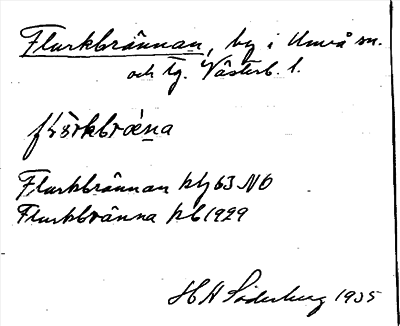 Flurkbrännan, by i Umeå sn.
och tg. Västerb. l.
Flurkbrännan 63 NO
Flurkbränna 1929
H H Söderberg 1935